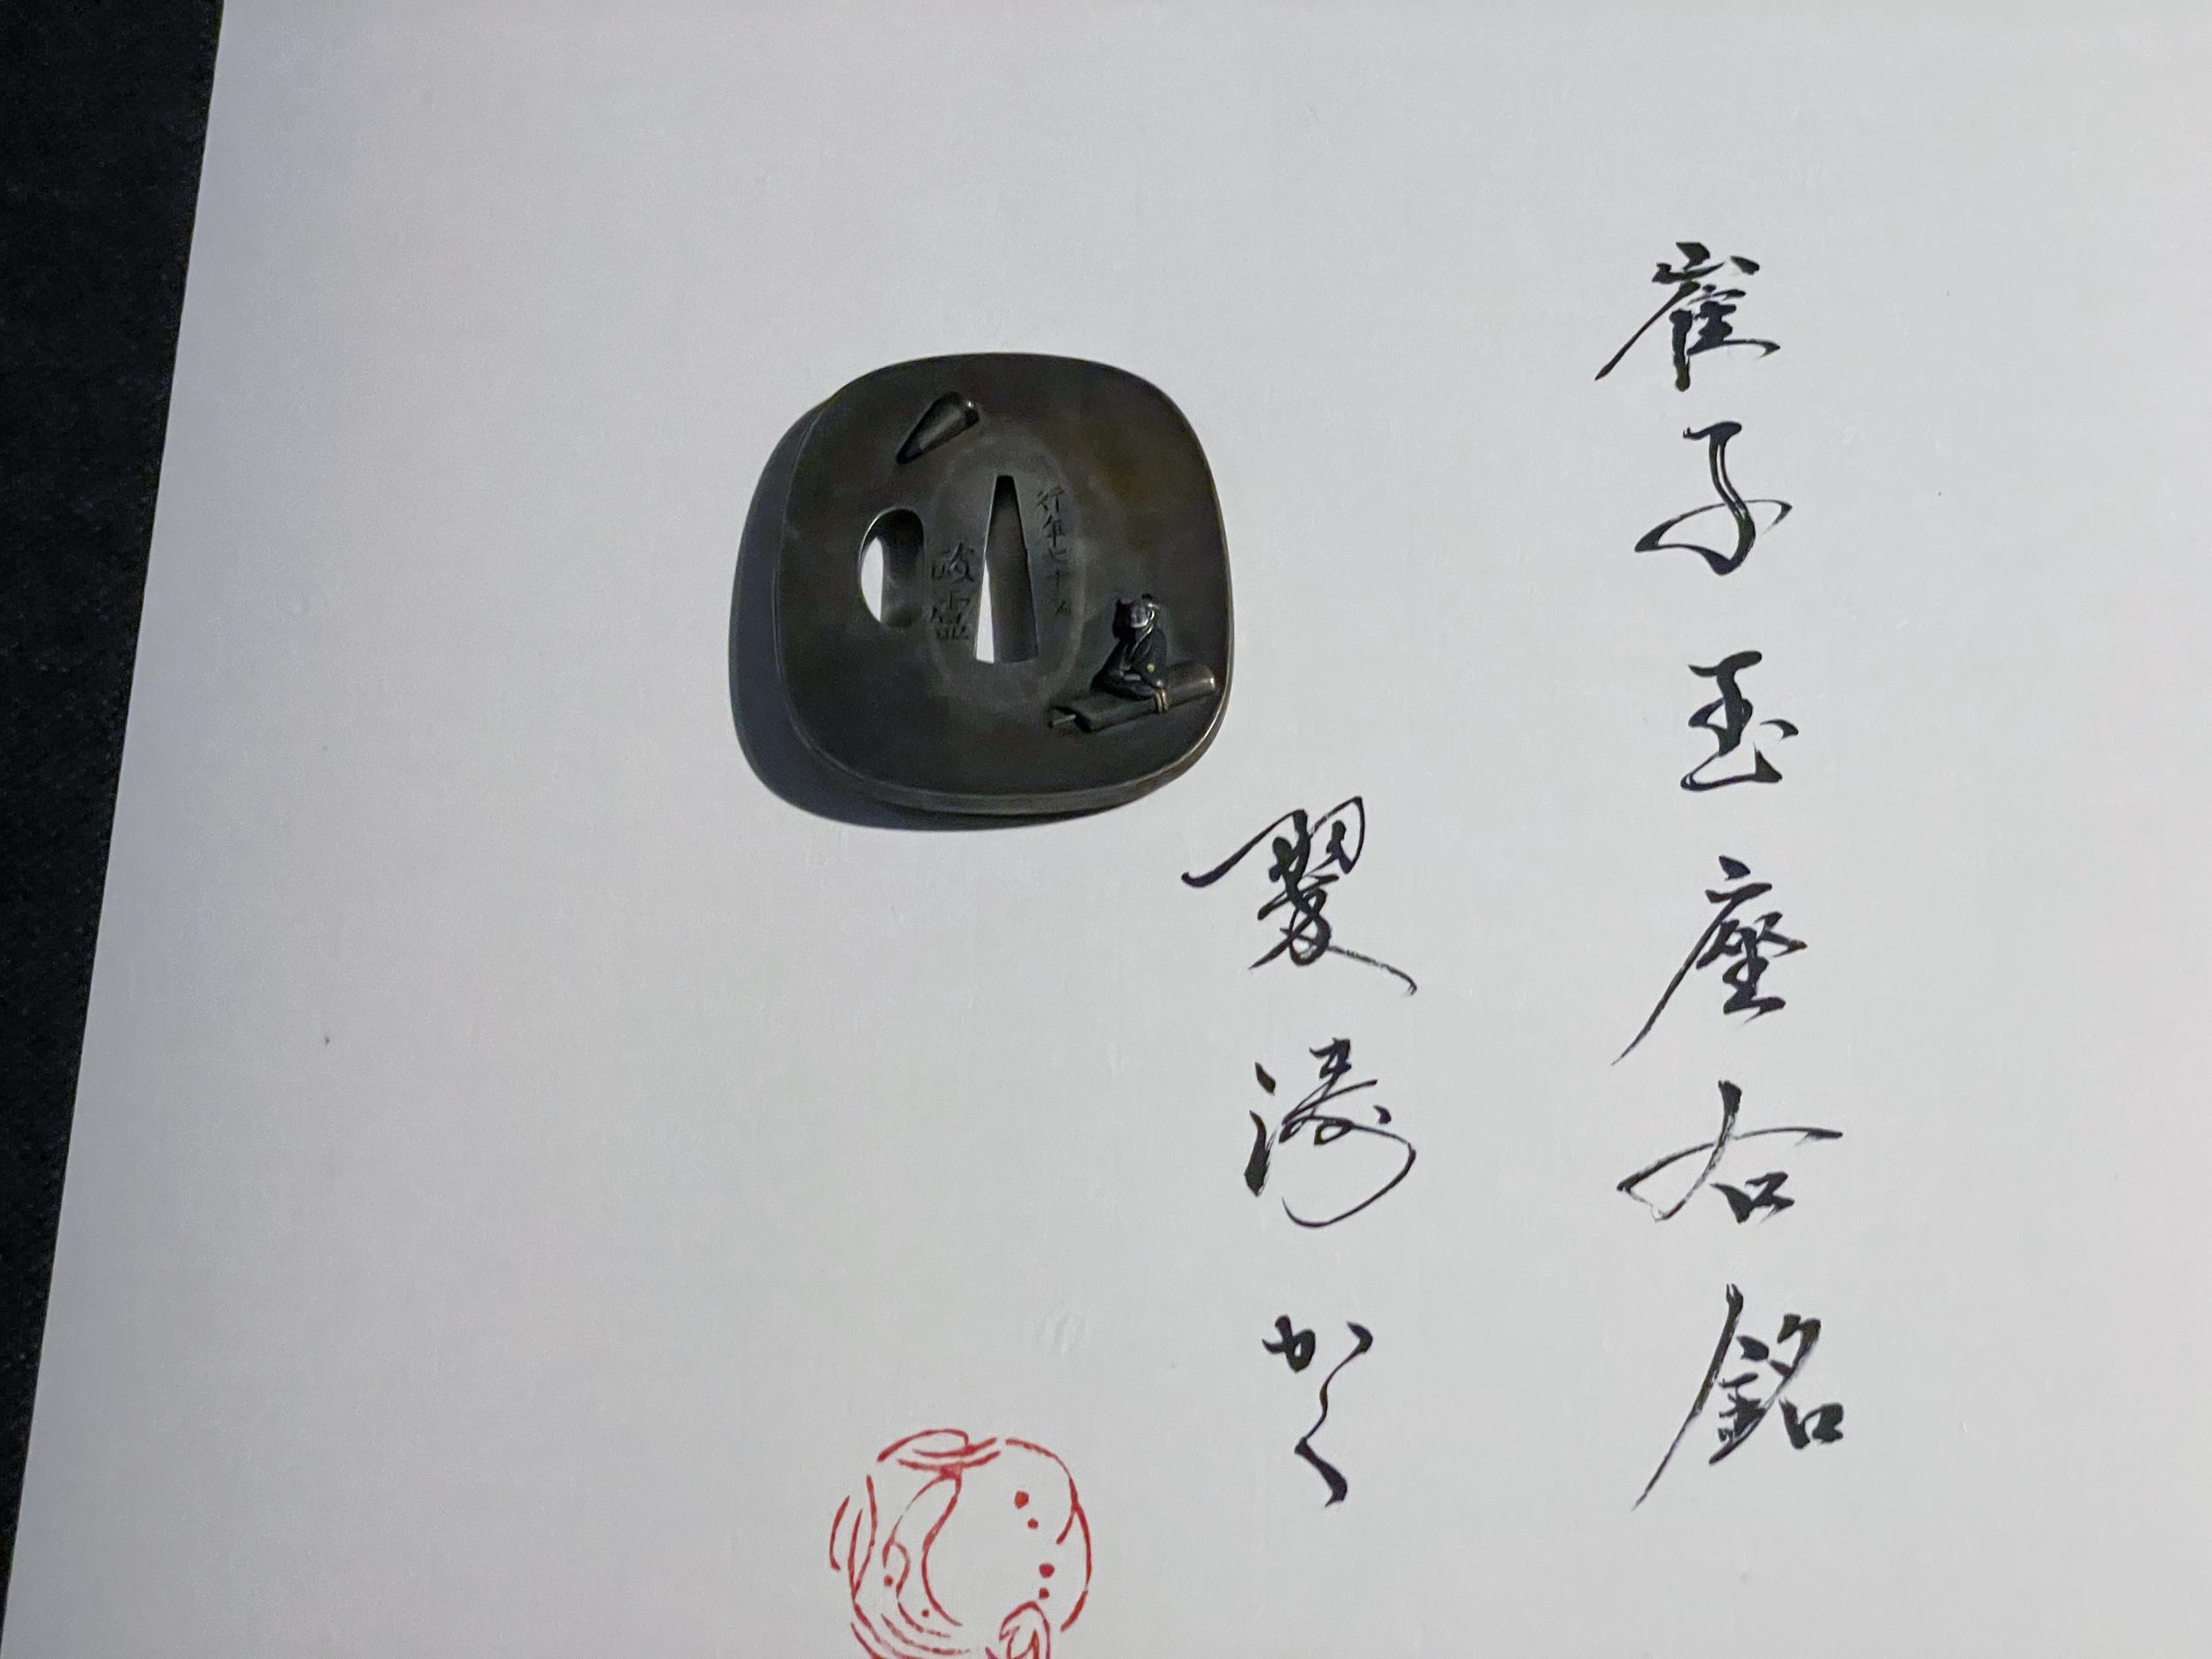 崔子玉座右銘
翠濤かく
行年七十
政